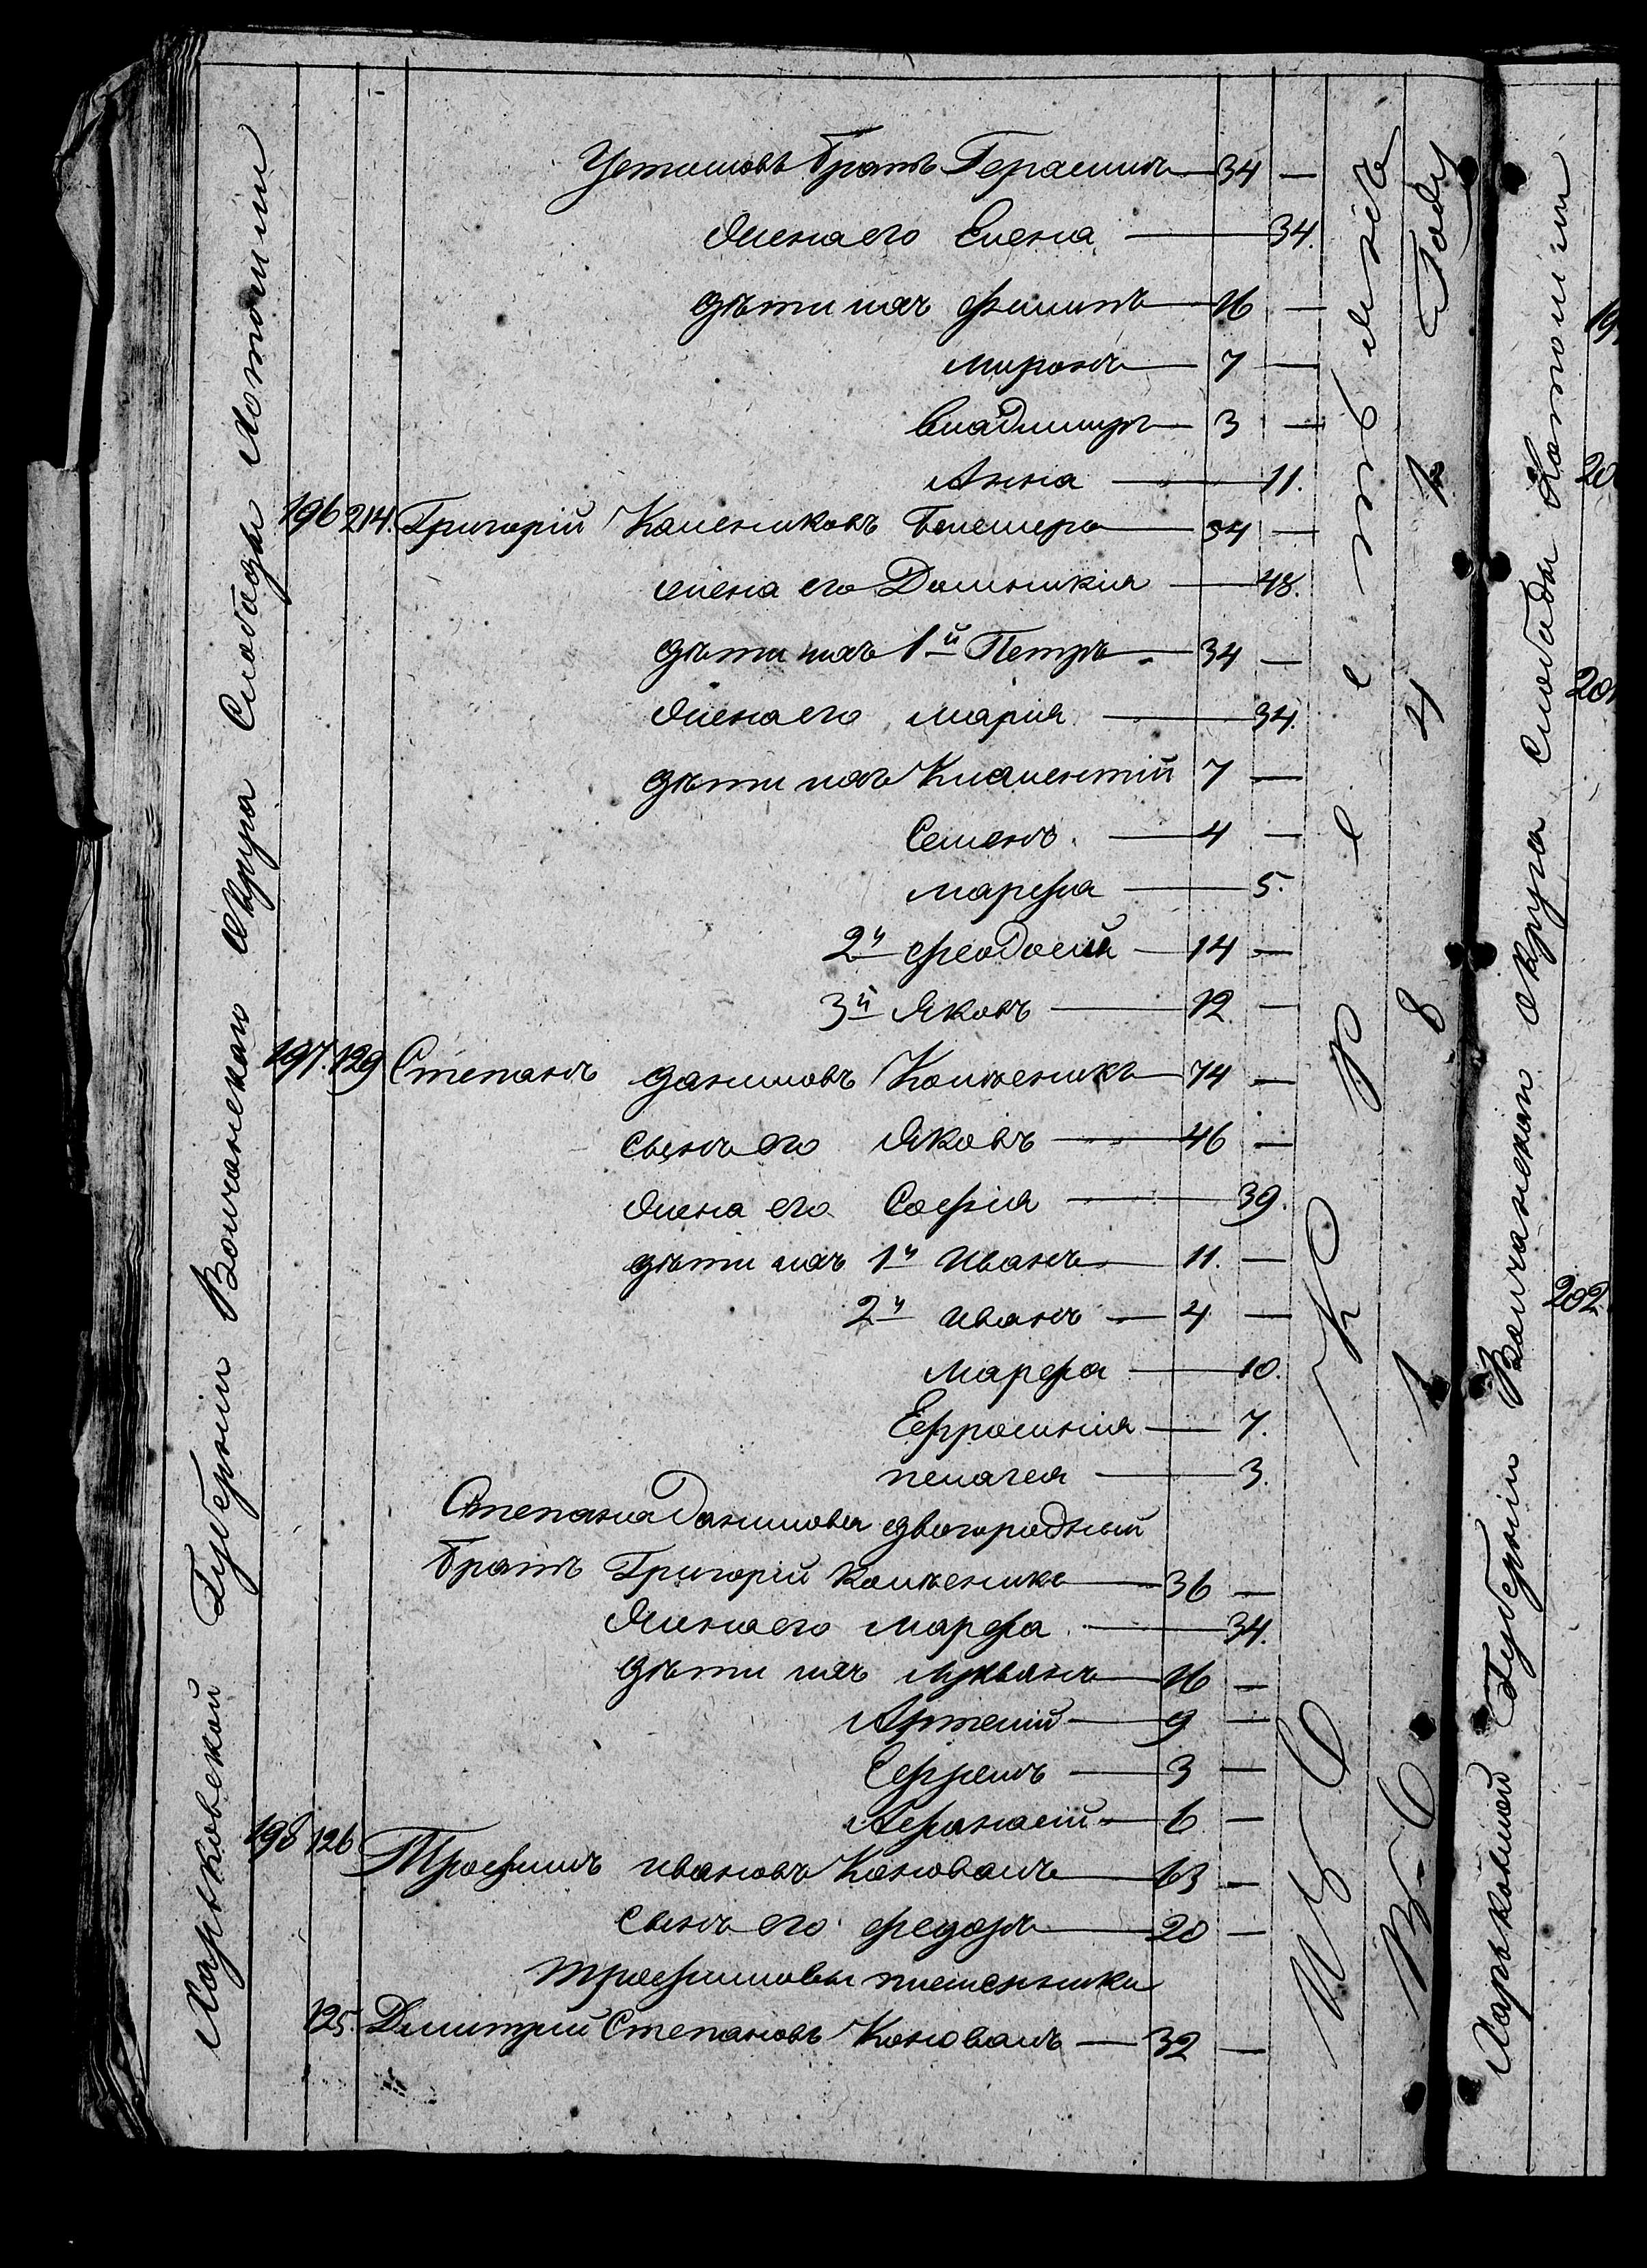 Харьковской Губерніи Волчанскаго Округа Слободы Хотомли
Устимовъ братъ Герасимъ — 34 —
Жена его Елена — 34.
дѣти ихъ Филипъ — 16 —
Миронъ — 7 —
Владимиръ — 3 —
Анна — 11.
196 214. Григорій Колесниковъ — 54 —
жена его Домникія — 48.
дѣти ихъ 1й Петръ — 34 —
Жена его Марія — 34.
дѣти ихъ Климентій 7 —
Семенъ — 4 —
Марфа — 5.
2й Феодосій — 14 —
3й Яковъ — 12 —
197. 129 Степанъ Даниловъ — 74 —
Сынъ его Яковъ — 46 —
Жена его Софія — 39.
дѣти ихъ 1й Иванъ — 11. —
2й Иванъ — 4 —
Марфа — 10.
Ефросинія — 7.
Пелагея — 3.
Степана Данилова двоюродный
братъ Григорій — 36 —
Жена его Марфа — 34.
дѣти ихъ Лукьянъ — 16 —
Артемій — 9 —
Ефремъ — 3 —
Афанасій — 6 —
198 126 Трофимъ Ивановъ Коновалъ — 63 —
Сынъ его Федоръ — 20 —
Трофимовы племенники
125. Дмитрий Степановъ Коновалъ — 32 —
1 8 4 Году
Харьковской Губерніи Волчанскаго Округа Слободы Хотомли
202.